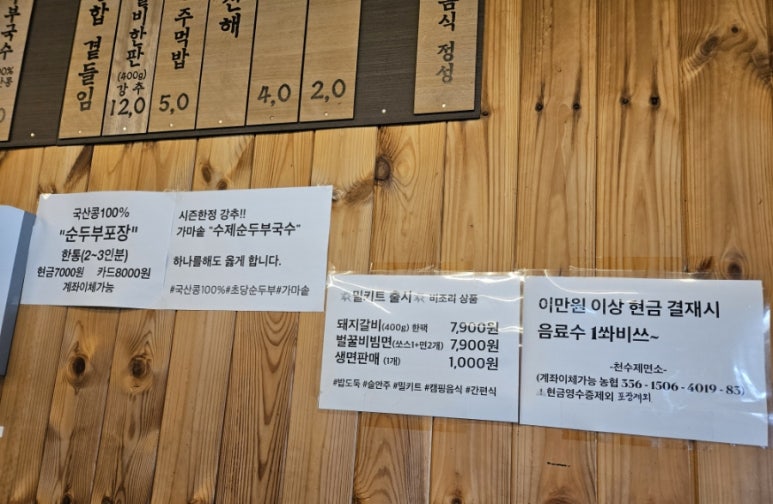 부국수
합 곁들임
갈비한판
(400g)
강추
12,0
주먹밥
5,0
4,0
2,0
음식 정성
국산콩100%
"순두부포장"
한통(2~3인분)
현금7000원 카드8000원
계좌이체가능
시즌한정 강추!!
가마솥 "수제순두부국수"
하나를해도 옳게 합니다.
#국산콩100%#초당순두부#가마솥
밀키트 출시 비조리 상품
돼지갈비(400g) 한팩 7,900원
벌꿀비빔면(쏘스1+면2개) 7,900원
생면판매 (1개) 1,000원
#밥도둑 #술안주 #밀키트 #캠핑음식 #간편식
이만원 이상 현금 결재시
음료수 1쏴비쓰~
-천수제면소-
(계좌이체가능 농협 356-1506-4019-83)
현금영수증제외 포장제외